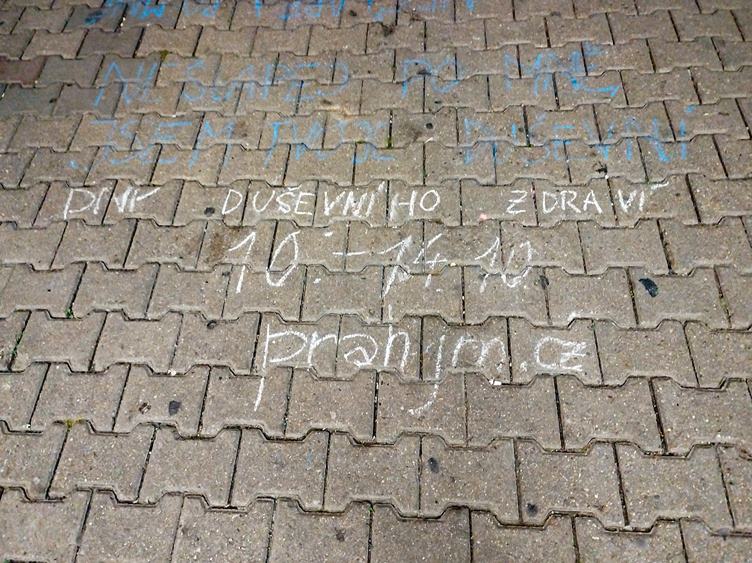 NESLAPEJ PO MNĚ,
JSEM TVOJE DUŠEVNÍ
DNY DUŠEVNÍHO ZDRAVÍ
10.–14.10.
prahjm.cz